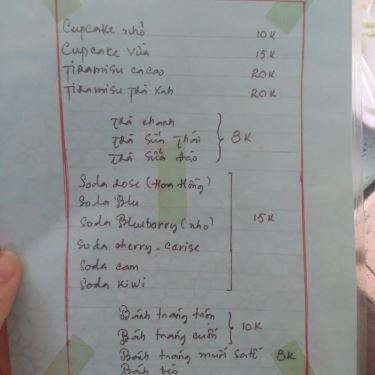 Cupcake nhỏ 10K
Cupcake vừa 15K
Tiramisu cacao 20K
Tiramisu Trà Xanh 20K
Trà chanh
Trà Sữa Thái 8K
Trà Sữa đào
Soda Rose (Hoa Hồng)
Soda Blu
Soda Blueberry (nho) 15K
Soda cherry - cerise
Soda cam
Soda Kiwi
Bánh tráng trộn
Bánh tráng cuốn 10K
Bánh tráng muối Satế 8K
Bánh